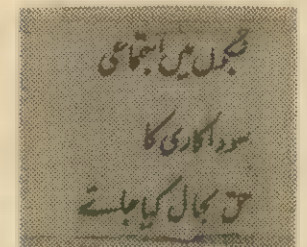 بنکوں میں اجتماعی
سودا کاری کا
حق بحال کیا جائے